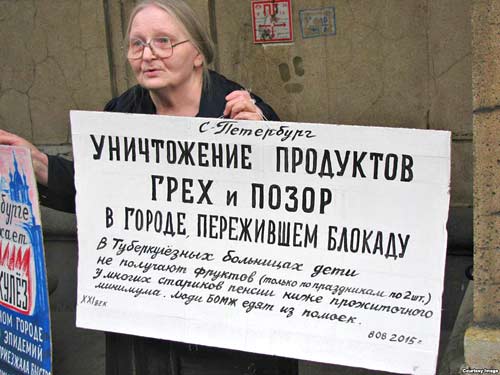 С-Петербург
УНИЧТОЖЕНИЕ ПРОДУКТОВ
ГРЕХ и ПОЗОР
В ГОРОДЕ, ПЕРЕЖИВШЕМ БЛОКАДУ
В Туберкулёзных больницах дети
не получают фрукты (только по праздникам по 2 шт.)
У многих стариков пенсии ниже прожиточного
минимума. Люди БОМЖ едят из помоек.
XXI век
8 08 2015 г
Courtesy Image